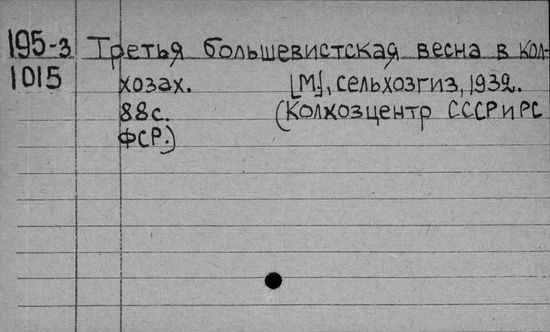 195-3 Третья большевистская весна в кол-
1015 хозах. [М.], сельхозгиз, 1932.
88с. (Колхозцентр СССР и РС
ФСР.)